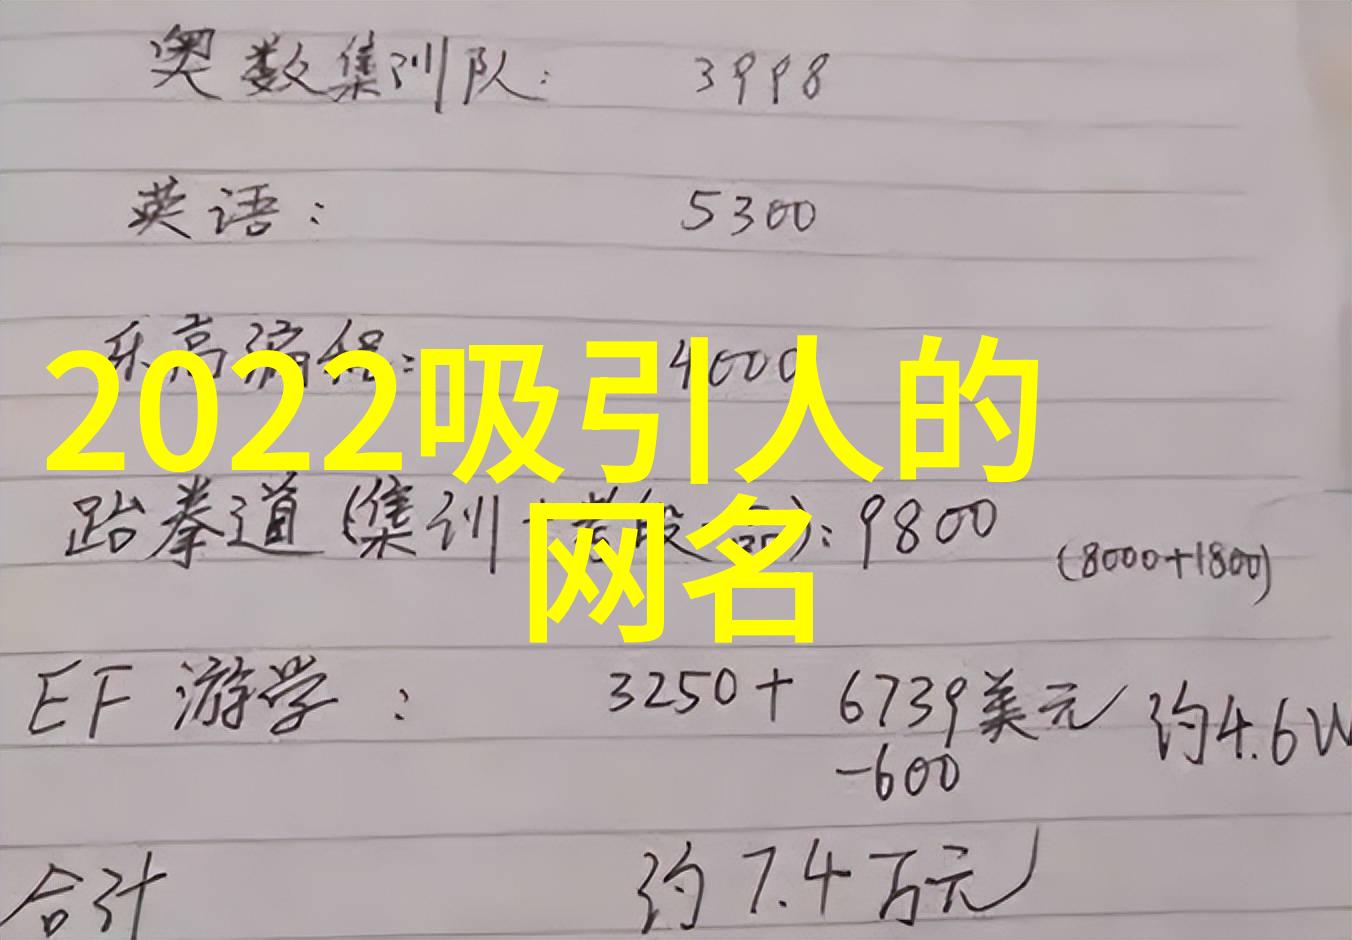 奥数集训队: 3998
英语: 5300
乐高编程: 4000
2022吸引人的
跆拳道(集训+考段 ): 9800 (8000+1800)
网名
EF 游学: 3250+ 6739美元 约4.6W
-600
合计 约7.4万元